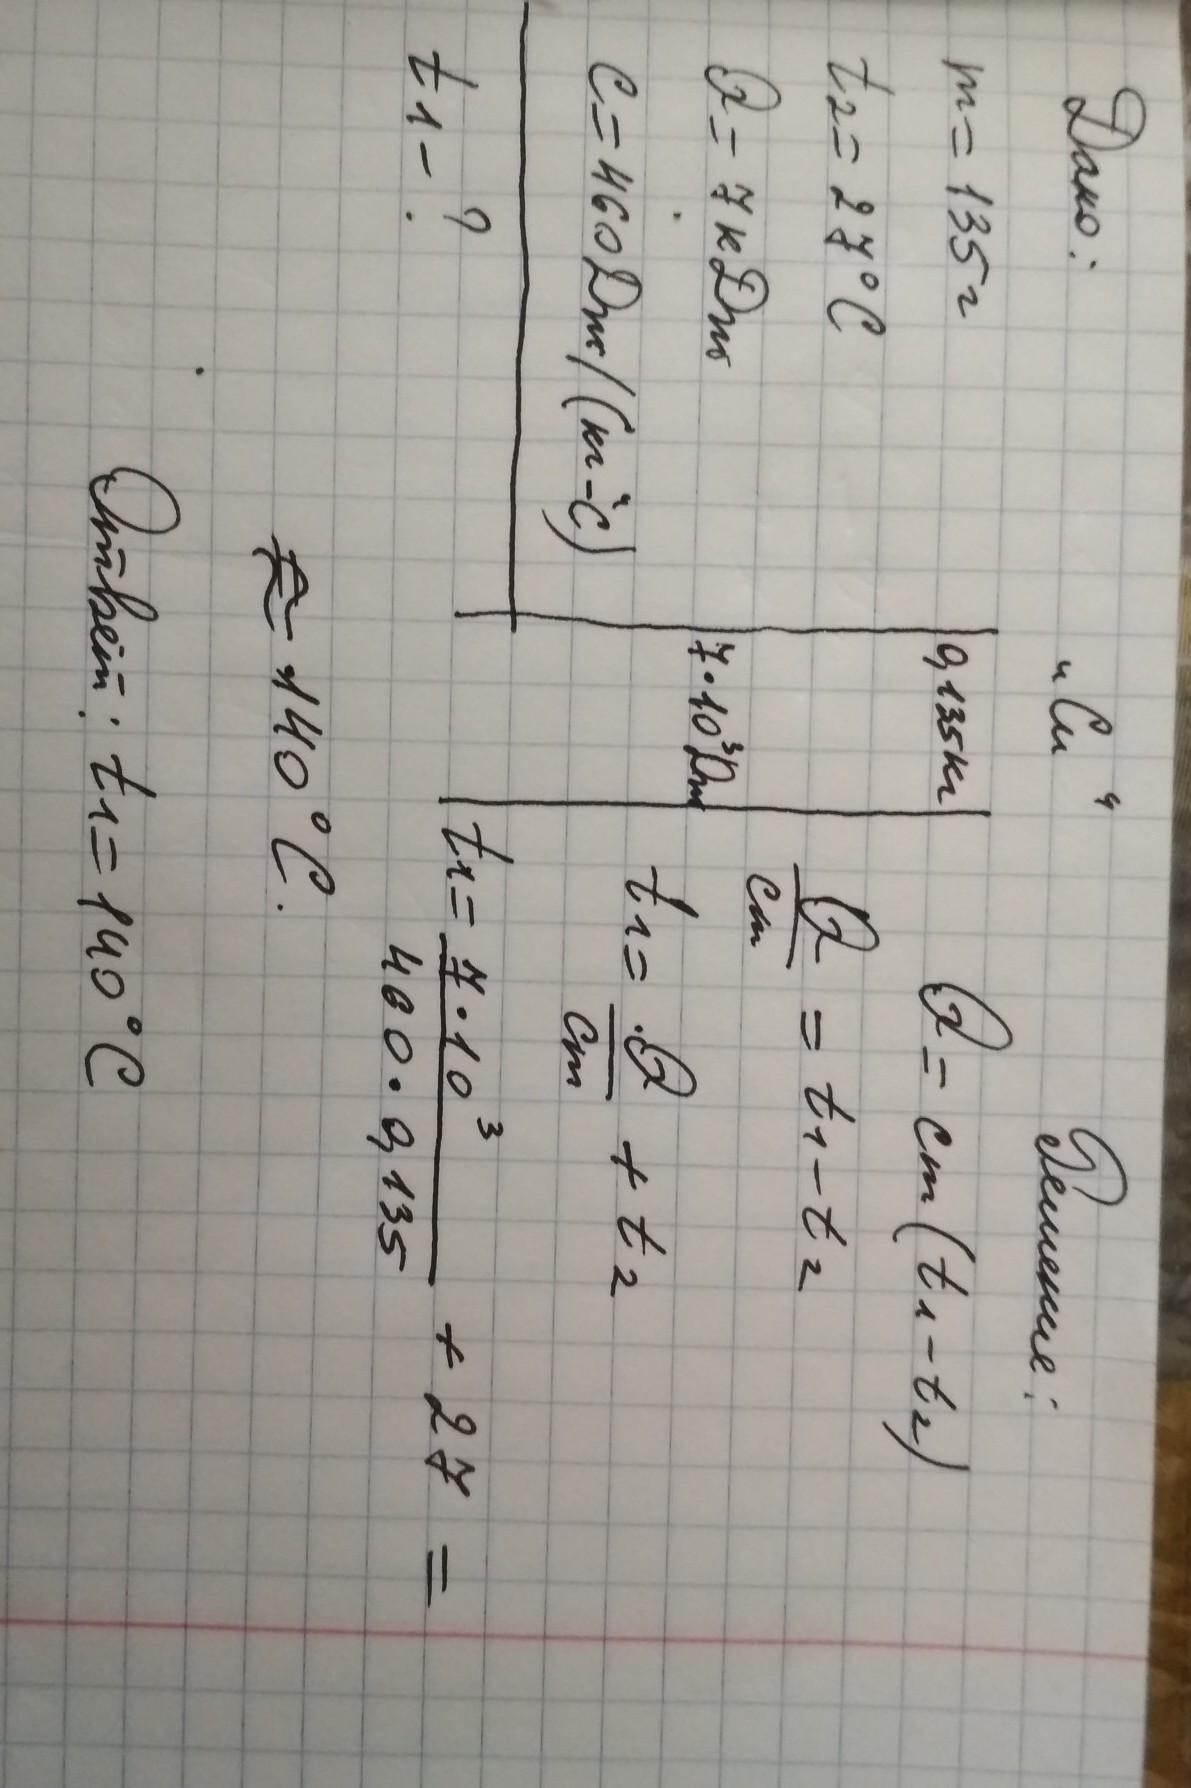 Дано:
m = 135 г
t₂ = 27°C
Q = 7 кДж
C = 460 Дж/(кг-°C)
t₁ - ?
"Си"
0,135 кг
7·10³ Дж
Решение:
Q = cm(t₁ - t₂)
Q/cm = t₁ - t₂
t₁ = Q/cm + t₂
t₁ = 7·10³/460·0,135 + 27 =
≈ 140°C.
Ответ: t₁ = 140°C